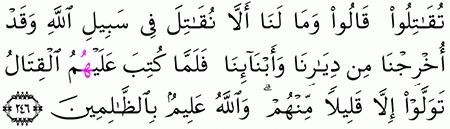 تُقَـٰتِلُوا۟ ۖ قَالُوا۟ وَمَا لَنَآ أَلَّا نُقَـٰتِلَ فِى سَبِيلِ ٱللَّهِ وَقَدْ
أُخْرِجْنَا مِن دِيَـٰرِنَا وَأَبْنَآئِنَا ۖ فَلَمَّا كُتِبَ عَلَيْهِمُ ٱلْقِتَالُ
تَوَلَّوْا۟ إِلَّا قَلِيلًا مِّنْهُمْ ۗ وَٱللَّهُ عَلِيمٌۢ بِٱلظَّـٰلِمِينَ ﴿٢٤٦﴾